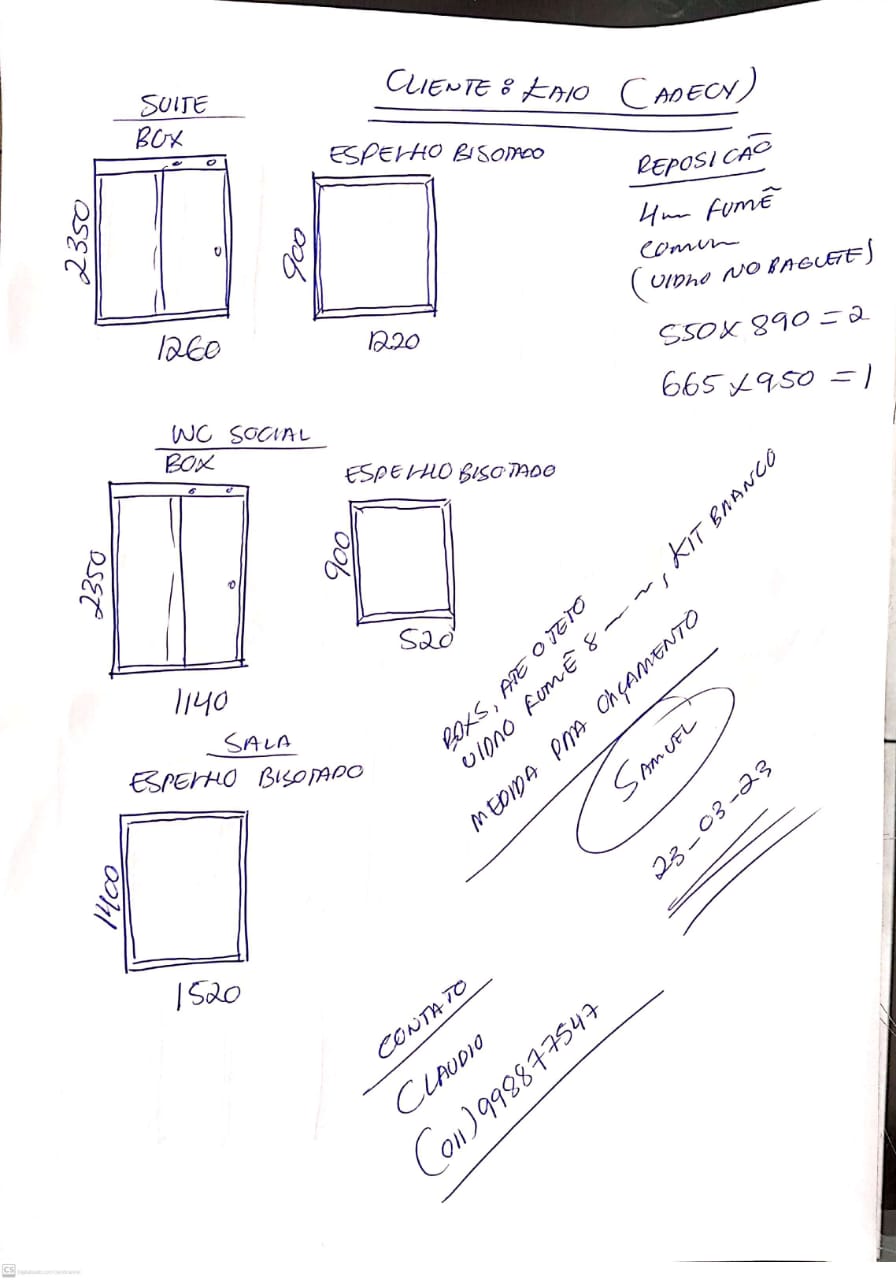 CLIENTE: KAIO (ADECY)
SUITE
BOX
2350
1260
ESPELHO BISOTADO
900
1220
REPOSICÃO
4mm FUMÊ
comum
(VIDRO NO BAGUETE)
550 X 890 = 2
665 X 950 = 1
WC SOCIAL
BOX
2350
1140
ESPELHO BISOTADO
900
520
SALA
ESPELHO BISOTADO
1400
1520
BOXS, ATE O TETO
VIDRO FUMÊ 8mm, KIT BRANCO
MEDIDA PRA ORÇAMENTO
SAMUEL
23-03-23
CONTATO
CLAUDIO
(011) 998877547
CS